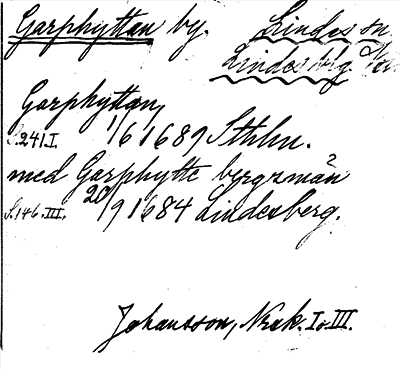 Garphyttan by. Lindes sn
Lindesblg
Garphyttan,
S.241.I. 1/6 1689 Sthlm.
med Garphytte bergzmän
S.146.III. 20/9 1684 Lindesberg.
Johansson, Nrak. I o. III.